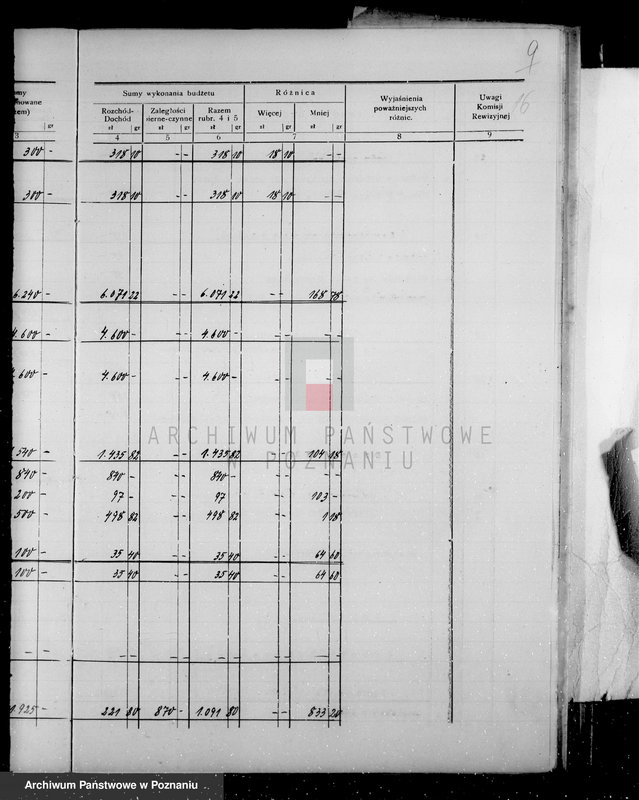 9
16
Sumy wykonania budżetu Różnica Wyjaśnienia poważniejszych różnic. Uwagi Komisji Rewizyjnej
Rozchód- Dochód Zaległości Razem rubr. 4 i 5 Więcej Mniej
zł gr zł gr zł gr zł gr zł gr
3 4 5 6 7 8 9
300 - 318 10 - - 318 10 18 10 - -
300 - 318 10 - - 318 10 18 10 - -
6.240 - 6.071 22 - - 6.071 22 - - 168 78
4.600 - 4.600 - - - 4.600 - - - - -
4.600 - 4.600 - - - 4.600 - - - - -
1.540 - 1.435 82 - - 1.435 82 - - 104 18
840 - 840 - - - 840 - - - - -
200 - 97 - - - 97 - - 103 -
500 - 498 82 - - 498 82 - - 1 18
100 - 35 40 - - 35 40 - - 64 60
100 - 35 40 - - 35 40 - - 64 60
- - - - - - - - - - - -
1.925 - 221 80 870 - 1.091 80 - - 833 20
ARCHIWUM PAŃSTWOWE
W POZNANIU
Archiwum Państwowe w Poznaniu